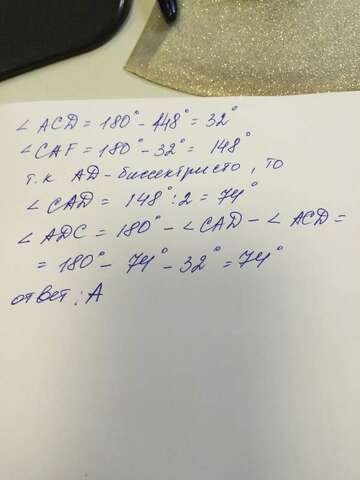 ∠ ACD = 180° - 148° = 32°
∠ CAF = 180° - 32° = 148°
т.к AD - биссектристо, то
∠ CAD = 148° : 2 = 74°
∠ ADC = 180° - ∠ CAD - ∠ ACD =
= 180° - 74° - 32° = 74°
ответ: А